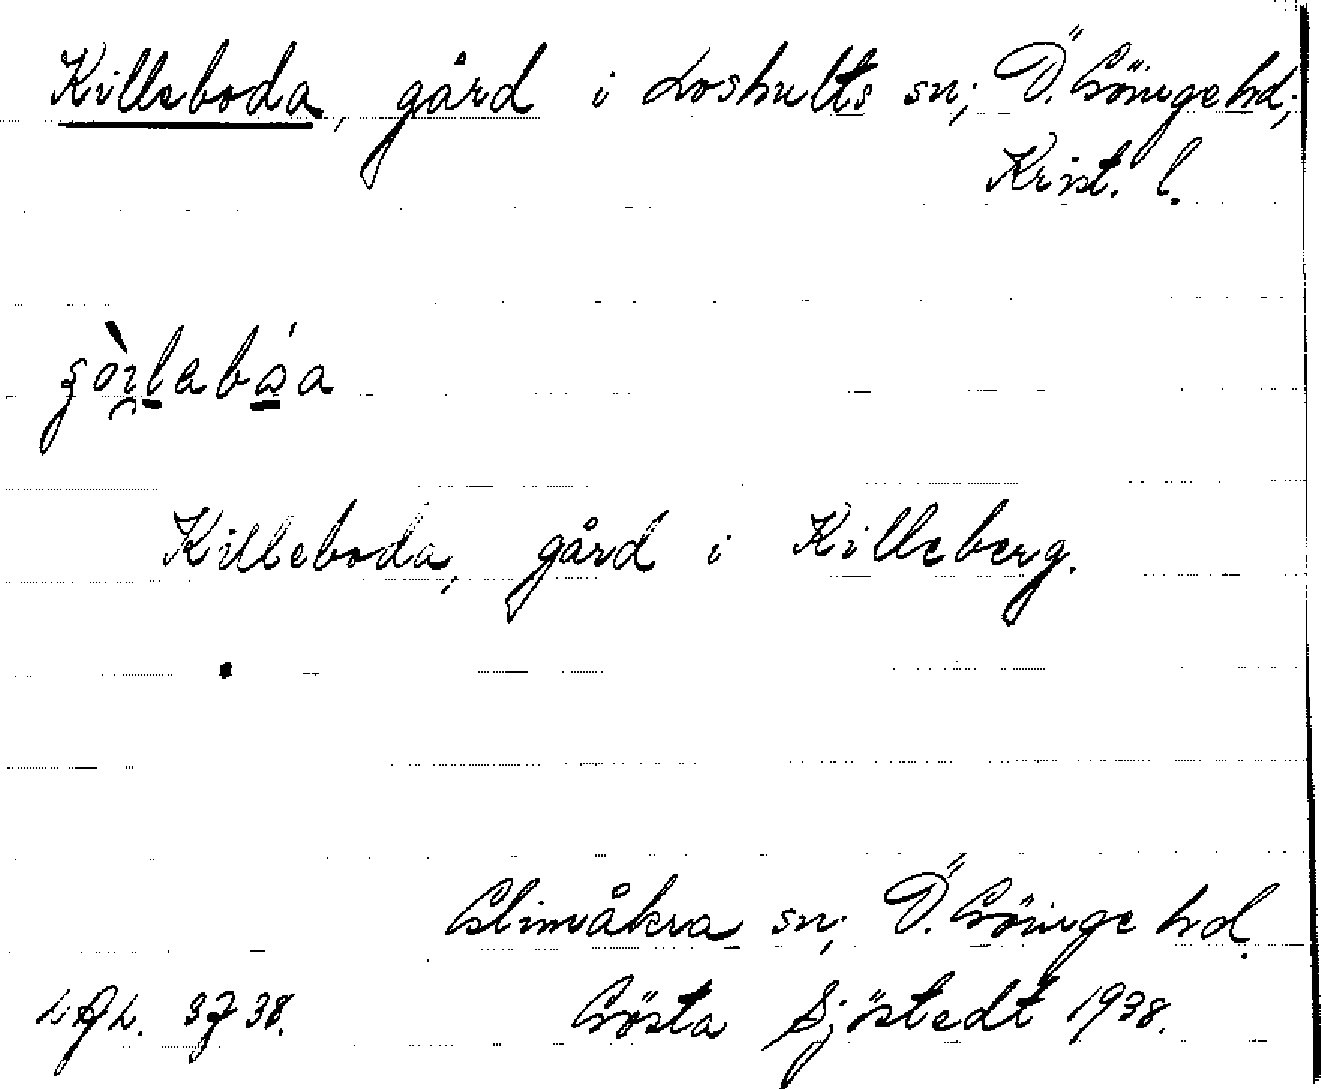 Killeboda, gård i Loshults sn; Ö. Göinge hd;
Krist. l.
Killeboda, gård i Killeberg.
Glimåkra sn; Ö. Göinge hd.
Gösta Sjöstedt 1938.